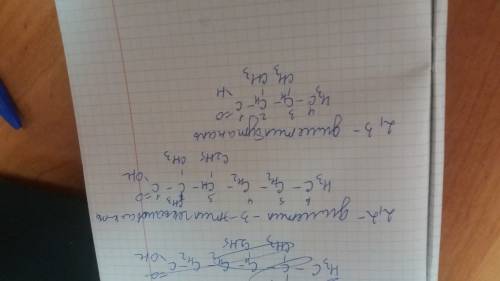 H₃C - C - CH - CH₂ - CH₂ - C=O
CH₃ C₂H₅ OH
2,2 - диметил - 3 -
6 5 4 3 CH₃ 1
H₃C - CH₂ - CH₂ - CH - C - C=O
C₂H₅ CH₃ OH
2,3 - диметилбутаналь
4 3 2 1
H₃C - CH - CH - C=O
CH₃ CH₃ H